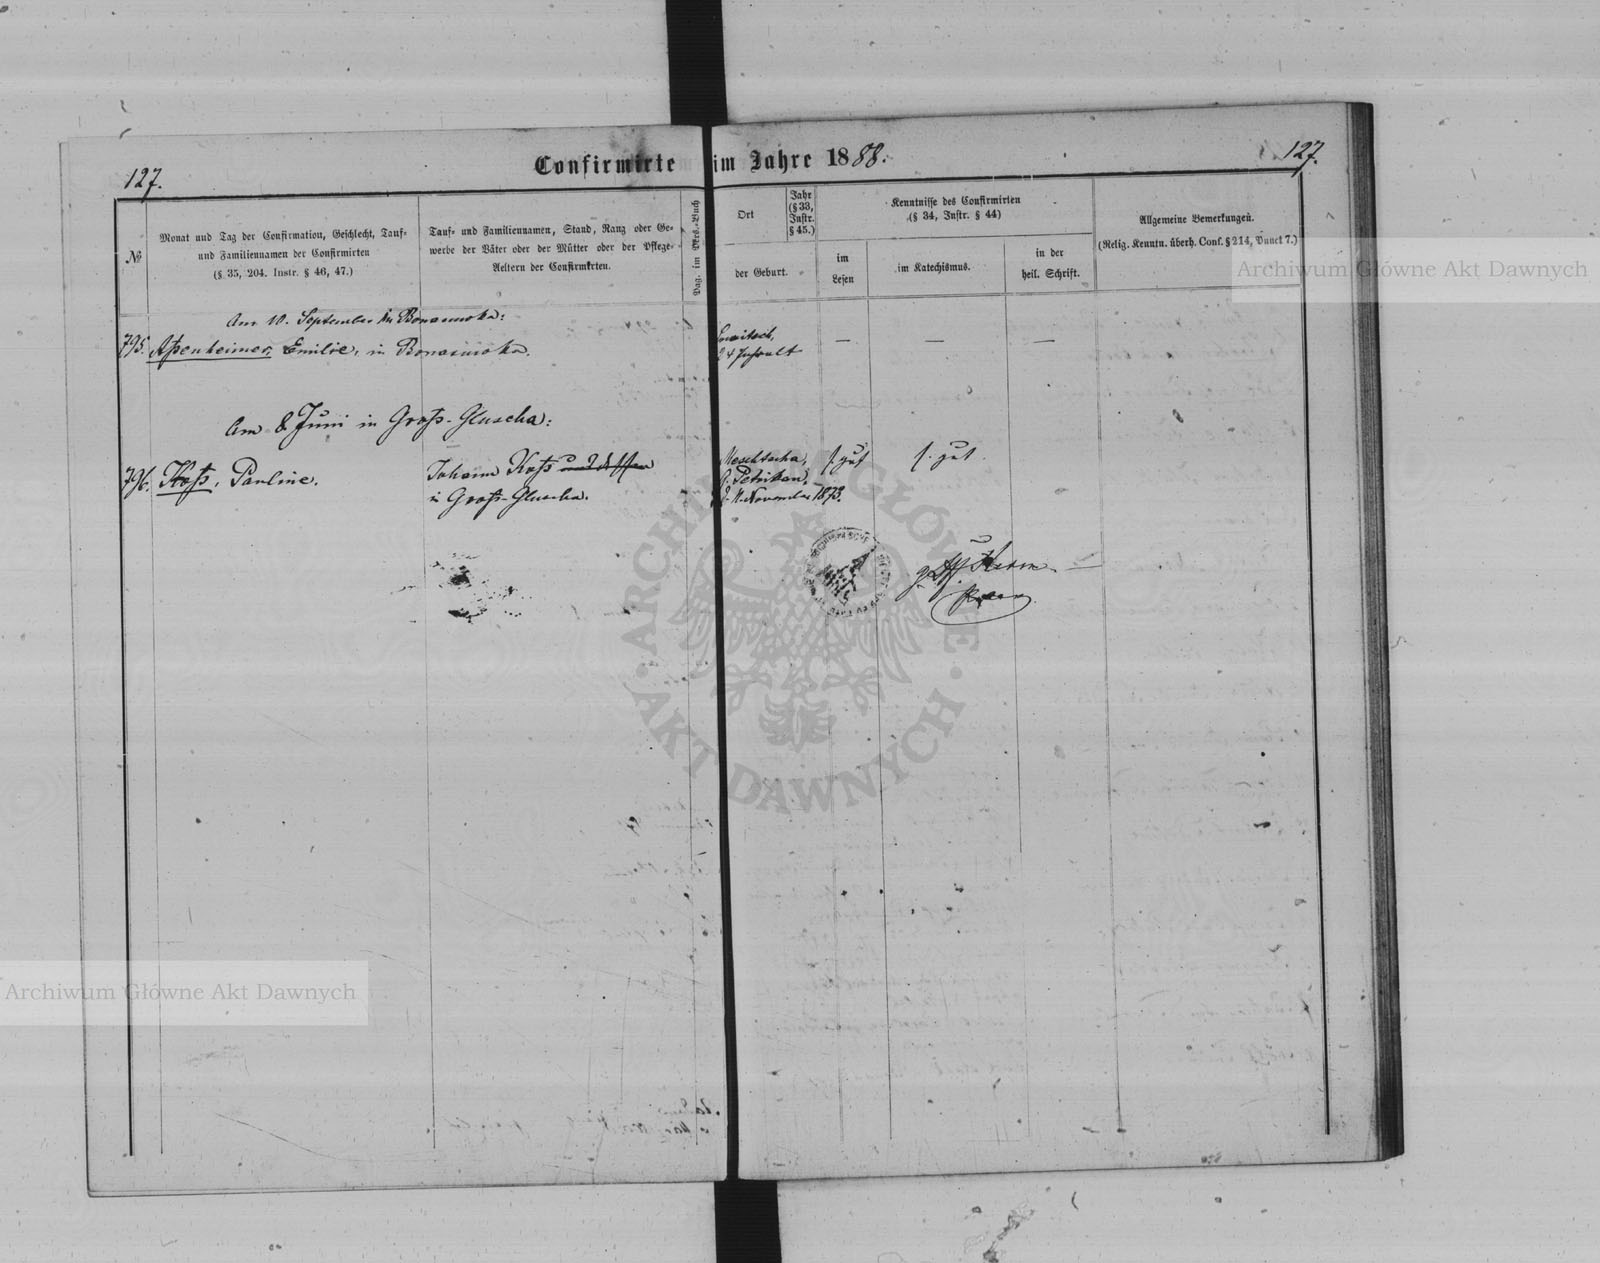 127.
Confirmirte im Jahre 1888.
127.
№
Monat und Tag der Confirmation, Geschlecht, Tauf=
und Familiennamen der Confirmirten
(§ 35, 204. Instr. § 46, 47.)
Tauf= und Familiennamen, Stand, Rang oder Ge=
werbe der Väter oder der Mütter oder der Pflege=
Aeltern der Confirmirten.
Pag. im Pers.=Buch
Ort
der Geburt.
Jahr
(§ 33,
Instr.
§ 45.)
Kenntnisse des Confirmirten
(§ 34, Instr. § 44)
im
Lesen
im Katechismus.
in der
heil. Schrift.
Allgemeine Bemerkungen.
(Relig. Kenntn. überh. Conf. § 214, Punct 7.)
Am 10. September in
795. Emilie, in
24 Jahr alt
— — —
Am 8 Juni in Groß-Gluscha:
796. Koß, Pauline.
Johann Koß
in Groß-Gluscha.
Meschtscha,
G. Petrikau,
November 1873.
s. gut
s. gut.
Archiwum Główne Akt Dawnych
ARCHIWUM GŁÓWNE
AKT DAWNYCH
Archiwum Główne Akt Dawnych